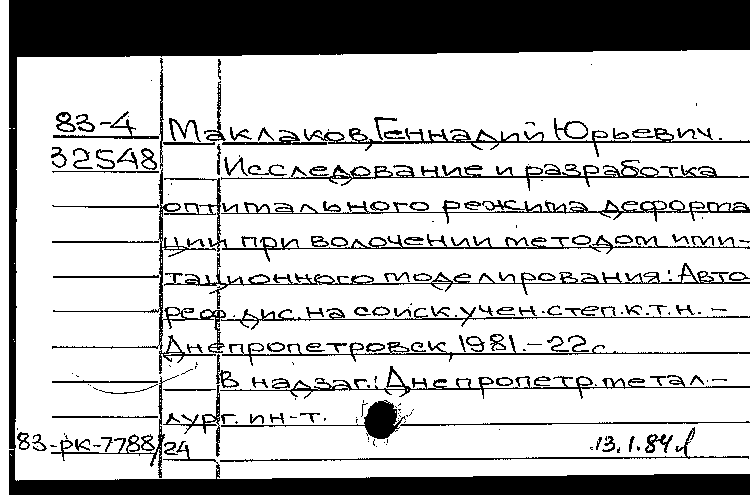 83-4 Маклаков, Геннадий Юрьевич.
32548 Исследование и разработка
оптимального режима деформа
ции при волочении методом ими-
тационного моделирования: Авто
реф. дис. на соиск. учен. степ. к.т.н. -
Днепропетровск, 1981. - 22с.
В надзаг.: Днепропетр. метал-
лург. ин-т.
83-рк-7788/24 13.1.84